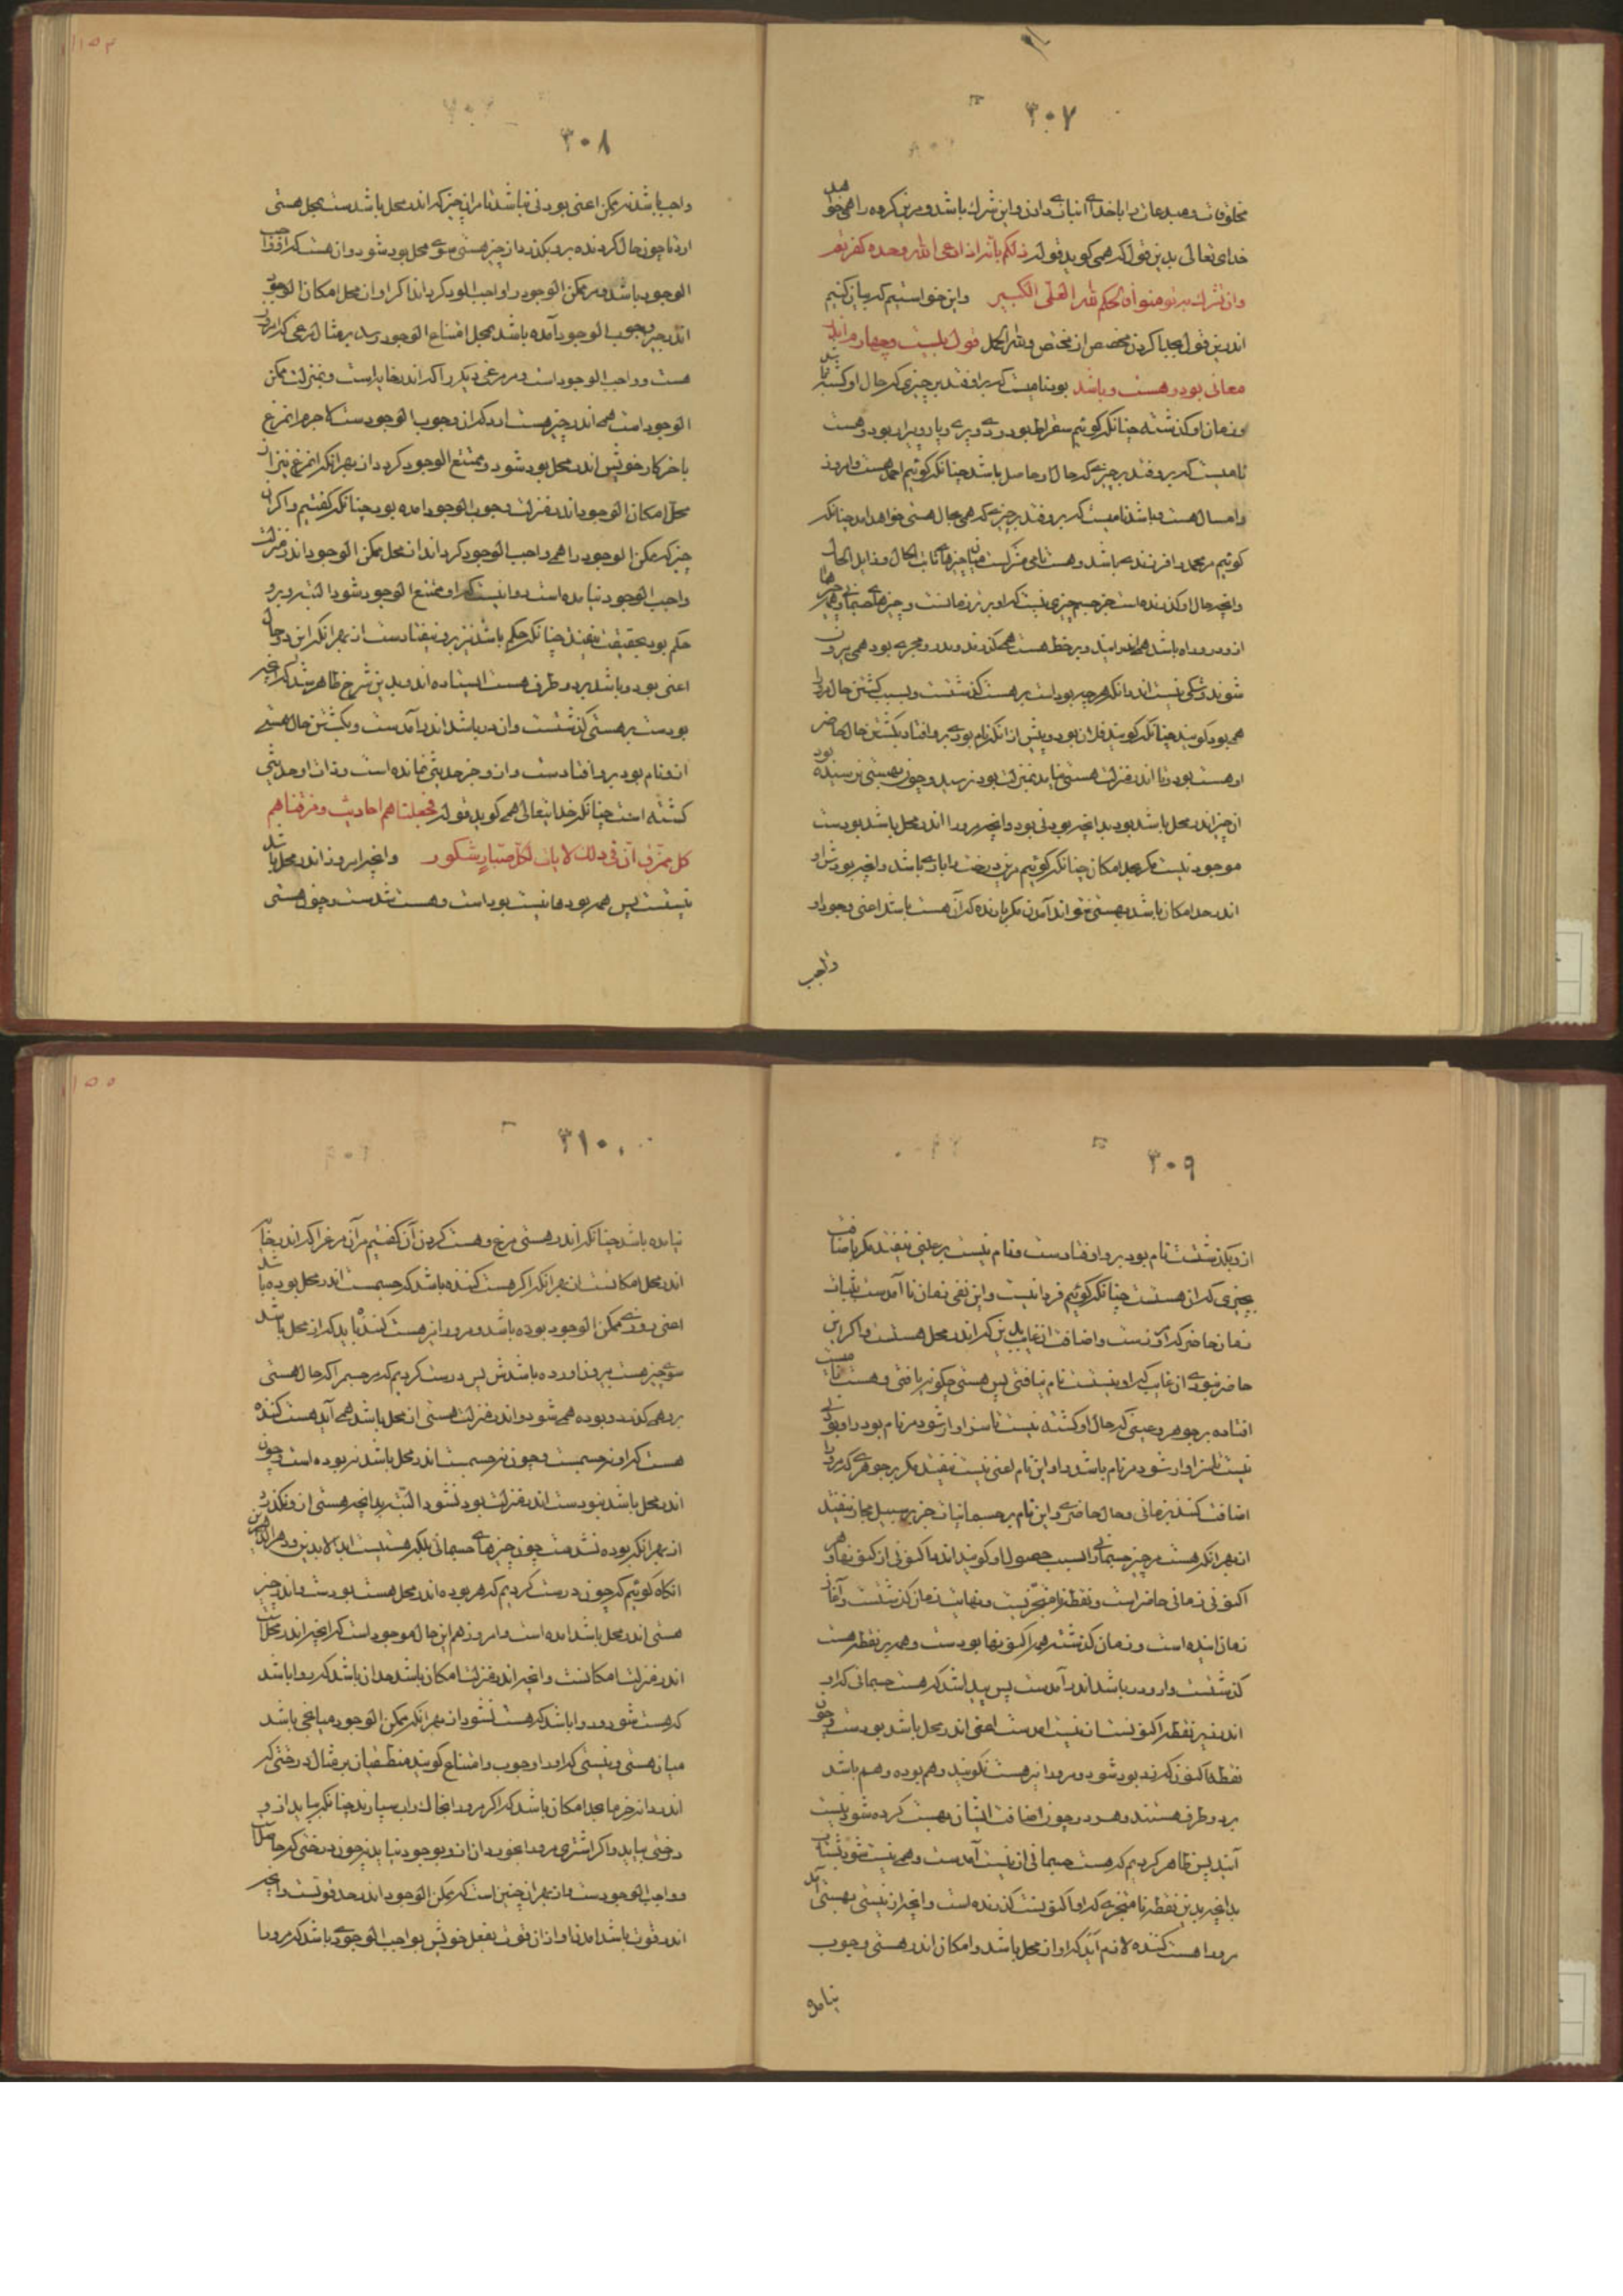 ۳۰۷
مخلوقات و مبدعات را با خدای انبازی دادن و این شرک باشد و مر این گروه را همی خواهد
خدای تعالی بدین قول که همی گوید قوله ذلکم بانه اذا دعی الله وحده کفرتم
وان یشرک به تومنوا فالحکم لله العلی الکبیر و این خواستیم که بیان کنیم
اندرین قول بجدا کردن مخصص از مختص ولله الحمد قول بیست و چهارم اندر
معانی بود و هست و باشد بود نامیست که برافتد بر چیزی که حال او گشته باشد
و زمان او گذشته چنانکه گوئیم سقراط بود و دی و پری و پار و پیرار بود و هست
نامیست که برافتد بر چیزی که حال او حاصل باشد چنانکه گوئیم احمد هست و امروز
و امسال هست و باشد نامیست که برافتد بر چیزی که همی بحال هستی خواهد آمد چنانکه
گوئیم مر محمد را فرزندی باشد و هست نامی مشترکست میان چیزهای ثابت الحال و زایل الحال
و آنچه حال او گذرنده است جز جسم چیزی نیست که او بزیر زمانست و چیزهای جسمانی همه
از در و راه باشد همی اندر آیند و بر خط هست همی گذرند و بدر و مجری بود همی بیرون
شوند و شکی نیست اندر آنکه هر چه بود است بر هست گذشتست و بسبب گشتن حال مرو را
همی بود گویند چنانکه گویند فلان بود و پیش از آنکه نام بود برو افتاد بگشتن حال حاضر
او هست بود و تا اندر منزلت هستی نیاید بمنزلت بود نرسید و چون بهستی نرسیده بود
آن چیز اندر محل باشد بود بدانچه بودنی بود و آنچه مرورا اندر محل باشد بودست
موجود نیست مگر بحد امکان چنانکه گوئیم مر این درخت را باری باشد و آنچه بودش او
اندر حد امکان باشد بهستی نتواند آمدن مگر باننده که آن هست باشد اعنی وجود او
واجب
۱۵۴
۳۰۸
واجب باشد نه ممکن اعنی بودنی نباشد تا مر آن چیز که اندر محل باشد ست بمحل هستی
آرد تا چون حال گردنده برو بگذرد از چیز هستی سوی محل بود شود و آن هست که او واجب
الوجود باشد و مر ممکن الوجود را واجب الوجود گرداند اگر او از محل امکان الوجود
اندر چیز وجوب الوجود آمده باشد بمحل امتناع الوجود رسد بر مثال مرغی که امروز
هست و واجب الوجود است و مر مرغی دیگر را که اندر خایه است و بمنزلت ممکن
الوجود است همی اندر چیز هست آرد که آن وجوب الوجود ست لاجرم این مرغ
باخر کار خویش اندر محل بود شود و ممتنع الوجود گردد از بهر آنکه این مرغ نیز از
محل امکان الوجود اندر منزلت وجوب الوجود آمده بود چنانکه گفتیم و اگر آن
چیز که ممکن الوجود را همی واجب الوجود گرداند از محل ممکن الوجود اندر منزلت
واجب الوجود نیامده است روا نیست که او ممتنع الوجود شود البته و برو
حکم بود بحقیقت نیفتد چنانکه حکم باشد نیز برو نیفتاد ست از بهر آنکه این دو حال
اعنی بود و باشد بر دو طرف هست ایستاده اند و بدین شرح ظاهر شد که آنچه
بود ست بر هستی گذشتست و از در باشد اندر آمد ست و بگشتن حال هستی
از و نام بود برو افتاد ست و از و جز حدیثی نمانده است و ذات او حدیثی
گشته است چنانکه خدایتعالی همی گوید قوله فجعلناهم احادیث و مزقناهم
کل ممزق ان فی ذلک لایات لکل صبار شکور و آنچه امروز اندر محل باشد
نیست پس همه بودها نیست بود است و هست شد ست و چون هستی
۳۰۹
از و بگذشتست نام بود برو افتاد ست و نام نیست بر عینی نیفتد مگر باضافت
بچیزی که آن هست چنانکه گوئیم فردا نیست و این نفی زمان ناآمد ست باثبات
زمان حاضر که اکنونست و اضافت آن غایب بدین که اندر محل هست و اگر این
حاضر نبودی آن غایب که او نیست نام نیافتی پس هستی چگونه یافتی و هست
افتاده بر جوهر و عینی که حال او گشته نیست تا سزاوار شود مر نام بود را و بودنی
نیست تا سزاوار شود مر نام باشد را و این نام اعنی نیست نیفتد مگر بر جوهری که مرو را
اضافت کنند بزمانی و حال حاضری و این نام بر جسمانیات جز بر سبیل مجاز نیفتد
از بهر آنکه هست مر چیز جسمانی را بسبب حصول او گویند اندر اکنونی از کنونها و هر
اکنونی زمانی حاضر است و نقطه نامتجزیست و نهایت زمان گذشتست و آغاز
زمان آینده است و زمان گذشته همه اکنونها بود ست و همه بر نقطه هست
گذشتست و از در باشد اندر آمد ست پس پیدا شد که هست جسمانی که او
اندر زیر نقطه اکنونست از نیست آمد ست اعنی اندر محل باشد بود ست و چون
نقطه اکنون گذرد بود شود و مرو را نیز هست نگویند و هم بوده و هم باشد
بر دو طرف هستند و هر دو چون اضافت ایشان بهست کرده شود نیست
آیند پس ظاهر کردیم که هست جسمانی از نیست آمد ست و همی نیست شود
بدانچه بدین نقطه نامتجزی که او اکنونست گذرنده است و آنچه از نیستی بهستی آید
مرو را هست کننده لازم آید که او از محل باشد و امکان اندر هستی و وجوب
نیامده
۱۵۵
۳۱۰
نیامده باشد چنانکه اندر هستی مرغ و هست کردن آن گفتیم مر آن مرغ را که اندر خایه
اندر محل امکانست از بهر آنکه اگر هست کننده باشد که جسمست اندر محل بوده باشد
اعنی روزی ممکن الوجود بوده باشد و مرو را نیز هست کننده باید که از محل باشد
سوی چیز هست بیرون آورده باشدش پس درست کردیم که مر جسم را که حال هستی
برو همی گذرد و بوده همی شود و اندر منزلت هستی از محل باشد همی آید هست کننده
هست که او نه جسمست و چون نه جسمست اندر محل باشد نه بوده است و چون
اندر محل باشد نبود ست اندر منزلت بود نشود البته بدانچه هستی از و نگذرد
از بهر آنکه بوده نشد ست چون چیزهای جسمانی بلکه هستیست ابدالابدین و دهرالداهرین
آنگاه گوئیم که چون درست کردیم که هر بوده اندر محل هست بود ست و اندر چیز
هستی اندر محل باشد آمده است و امروز هم این حال موجود است که آنچه اندر محل باشد
اندر منزلت امکانست و آنچه اندر منزلت امکان باشد حد آن باشد که روا باشد
که هست شود و روا باشد که هست نشود از بهر آنکه ممکن الوجود میانجی باشد
میان هستی و نیستی که او را وجوب و امتناع گویند منطقیان بر مثال درختی که
اندر دانه خرما بحد امکان باشد که اگر مرو را بخاک و آب سپارند چنانکه بباید از و
درختی بیاید و اگر اشتری مرو را بخورد از آن و بوجود نیاید پس چون درختی که حاصلست
و واجب الوجود ست و از بهر آن چنین است که ممکن الوجود اندر حد قوتست و آنچه
اندر قوت باشد آمدن او از آن قوت بفعل خویش بواجب الوجودی باشد که مرو را